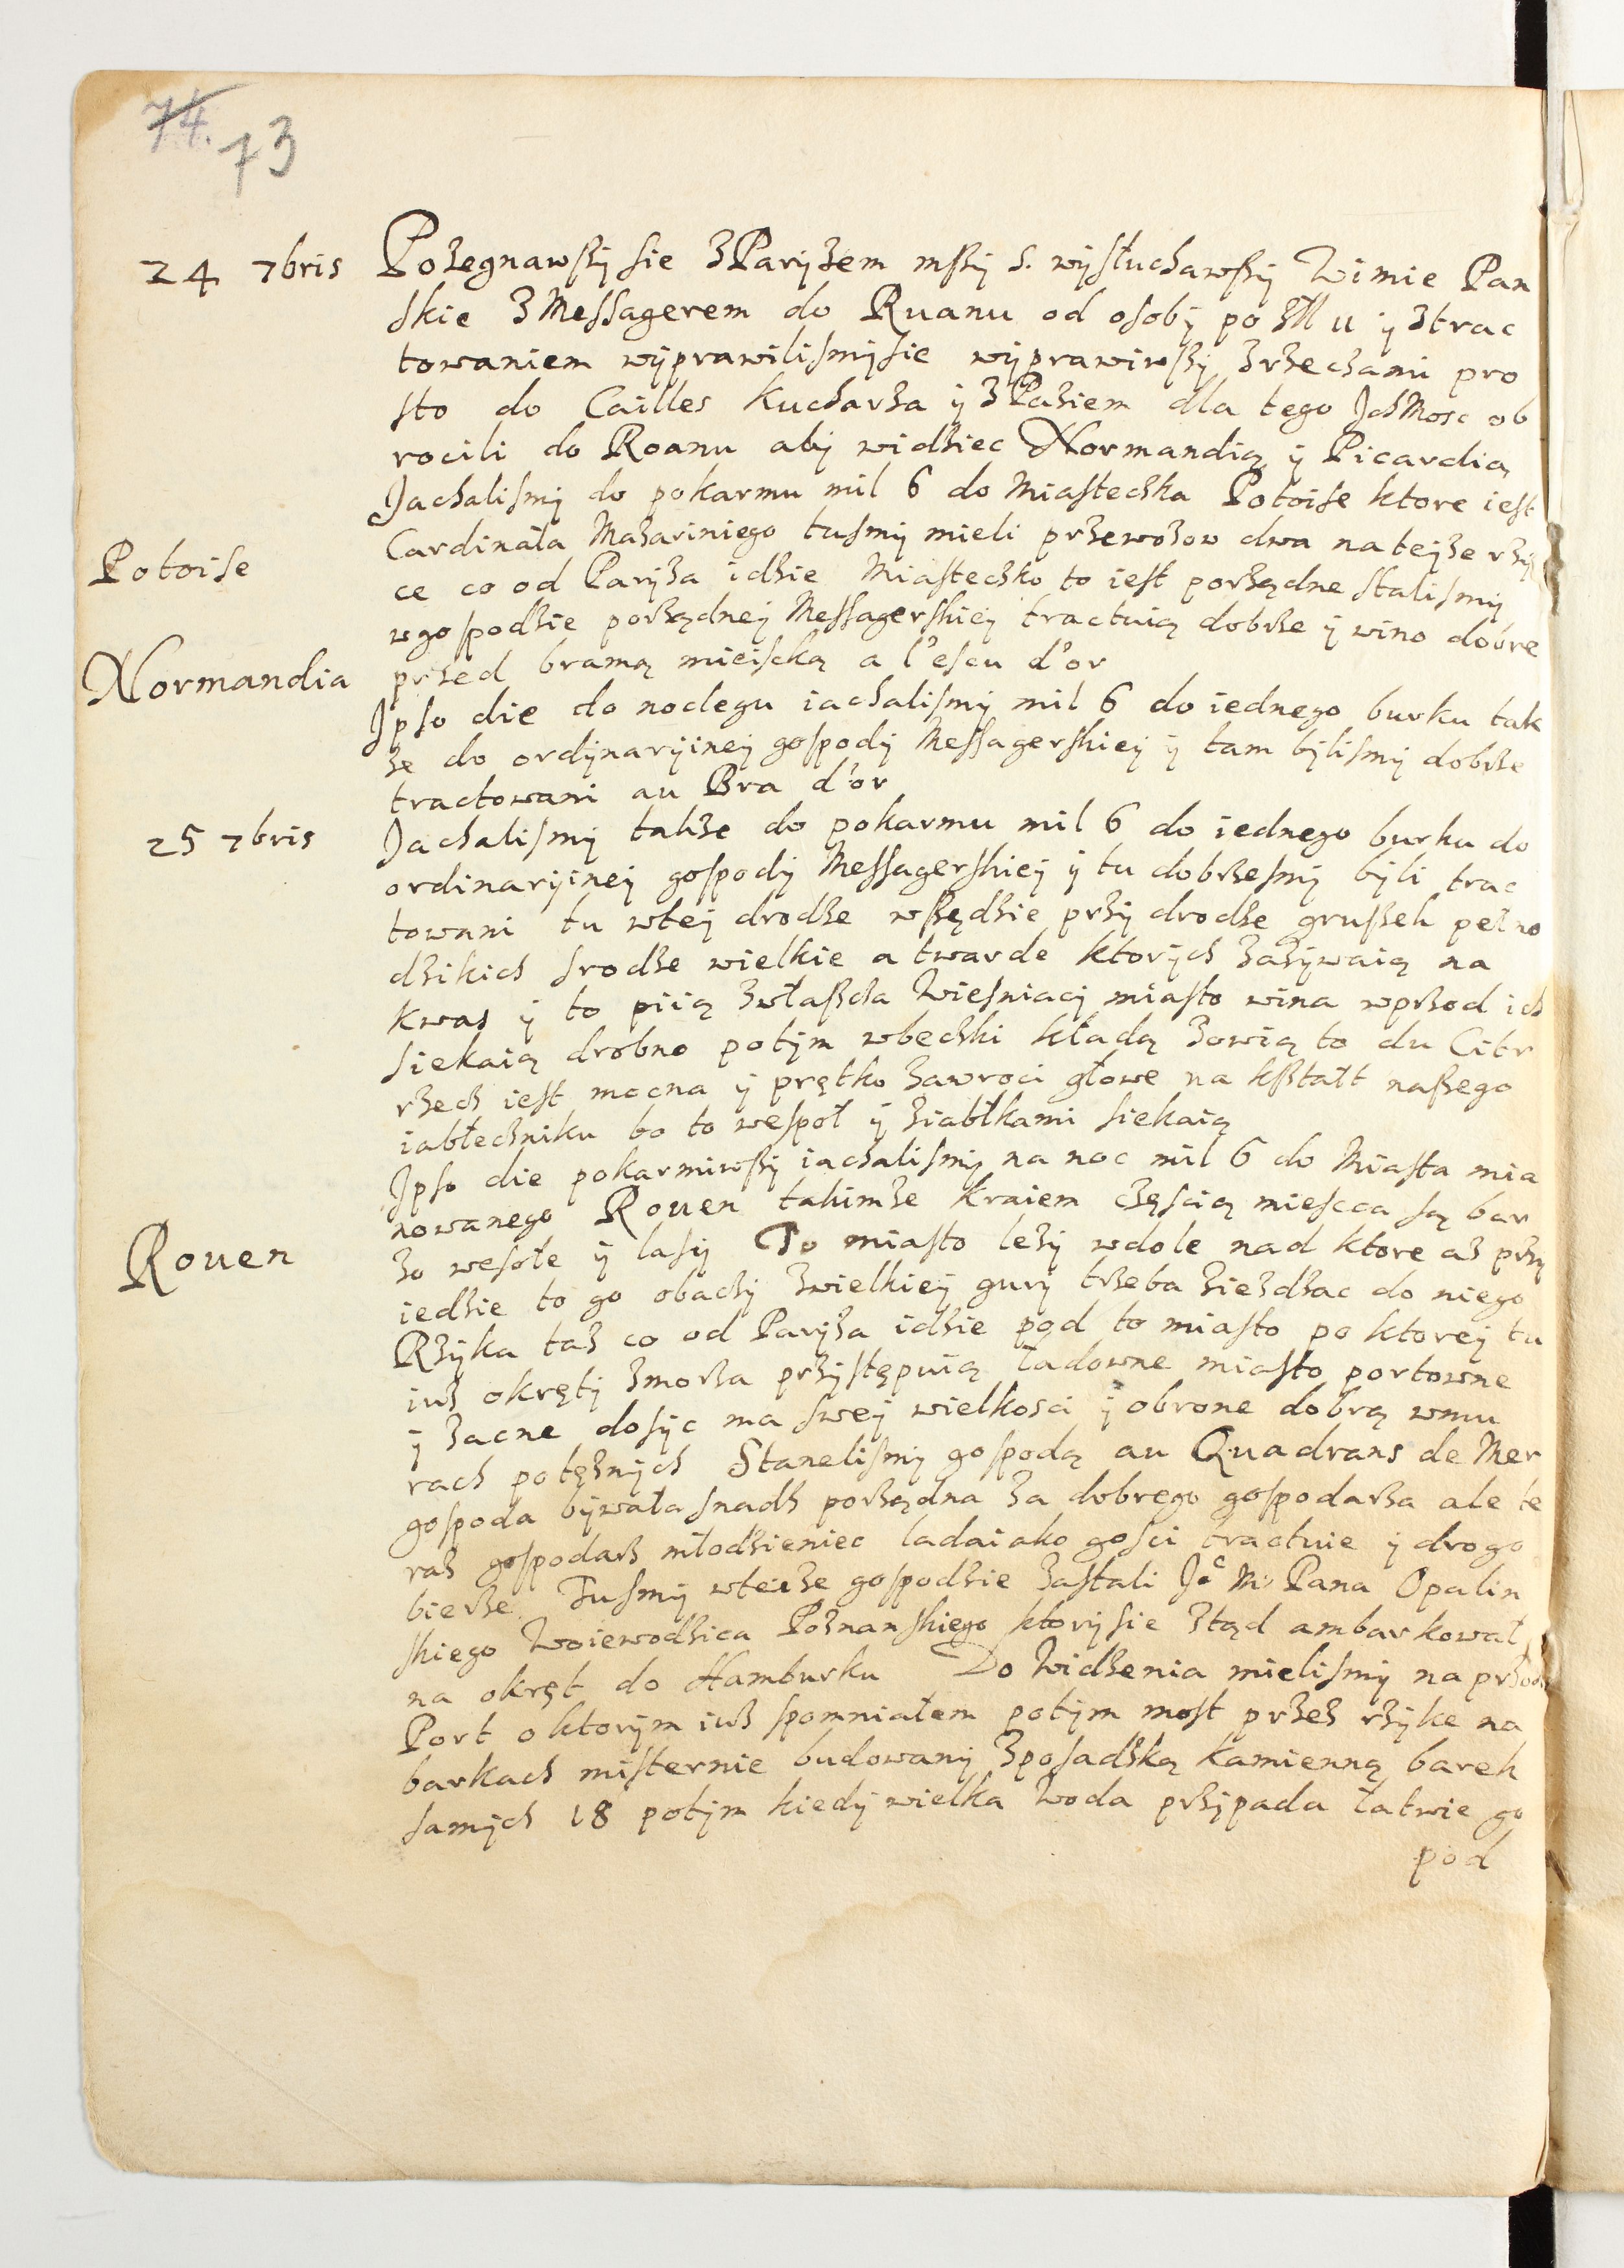 74.
73
24 7bris Pozegnawszy sie z Paryzem mszy s. wysłuchawszy W imie Pan
skie z Messagerem do Ruanu od osoby po y ztrac
towaniem wyprawilismysie wyprawiwszy zrzeczami pro
sto do Cailles Kucharza y z Paziem dla tego IchMosc ob
rocili do Roanu aby widziec Normandią y Picardią
Jachalismy do pokarmu mil 6 do Miasteczka Potoise ktore iest
Cardinała Mazariniego tusmy mieli przewozow dwa na teyze rzy
Potoise
ce co od Paryza idzie Miasteczko to iest porządne stalismy
w gospodzie porządney Messagerskiey tractuią dobrze y wino dobre
Normandia
przed bramą mieiscką a l'escu d'or
Ipso die do noclegu iachalismy mil 6 do iednego burku tak
ze do ordynaryiney gospody Messagerskiey y tam bylismy dobrze
tractowani au Bra d'or
25 7bris Jachalismy takze do pokarmu mil 6 do iednego burku do
ordinaryiney gospody Messagerskiey y tu dobrzesmy byli trac
towani tu wtey drodze wszędzie przy drodze gruszek pełno
dzikich srodze wielkie a twarde ktorych zazywaią na
kwas y to piią zwłaszcza Wiesniacy miasto wina wprzod ich
siekaią drobno potym wbeczki kładą zowią to du Citr
rzecz iest mocna y prętko zawroci głowe na kształt naszego
iabłeczniku bo to wespoł y ziabłkami siekaią
Ipso die pokarmiwszy iachalismy na noc mil 6 do Miasta mia
nowanego Rouen takimze kraiem częscią miescca są bar
Rouen
zo wesołe y lasy To miasto lezy wdole nad ktore az przy
iedzie to go obaczy zwielkiey gury trzeba ziezdzac do niego
Rzyka taz co od Paryza idzie pod to miasto po ktorey tu
iuz okręty zmorza przystępuią ładowne miasto portowne
y zacne dosyc ma swey wielkosci y obrone dobrą wmu
rach potęznych Stanelismy gospodą au Quadrans de Mer
gospoda bywała snadz porządna za dobrego gospodarza ale te
raz gospodarz młodzieniec ladaiako gosci tractuie y drogo
bierze Tusmy wteize gospodzie zastali Jeo M Pana Opalin
skiego Woiewodzica Poznanskiego ktorysie ztąd ambarkował
na okręt do Hamburku Do Widzenia mielismy na przod
Port o ktorym iuz spomniałem potym most przez rzyke na
barkach misternie budowany zposadzką kamienną barek
samych 18 potym kiedy wielka Woda przypada łatwie go
pod